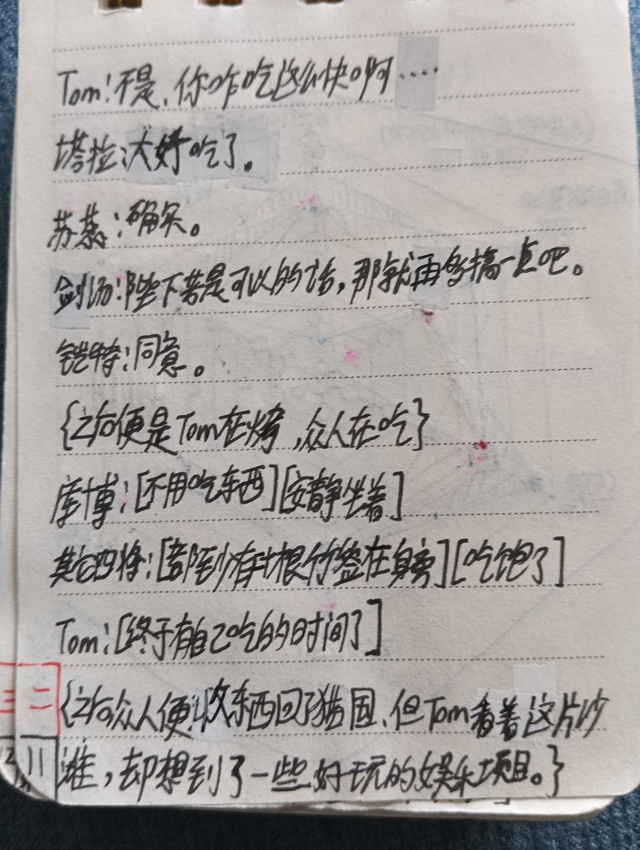 Tom:不是,你咋吃这么快啊····
塔拉:太好吃了。
苏蕊:确实。
剑汤:陛下若是可以的话,那就再多搞一点吧。
铠特:同意。
{之后便是Tom在烤,众人在吃}
库博:[不用吃东西][安静坐着]
其它四将:[都至少有七根竹签在身旁][吃饱了]
Tom:[终于有自己吃的时间了]
{之后众人便收东西回了猫国,但Tom看着这片沙
滩,却想到了一些好玩的娱乐项目。}
三 二
11